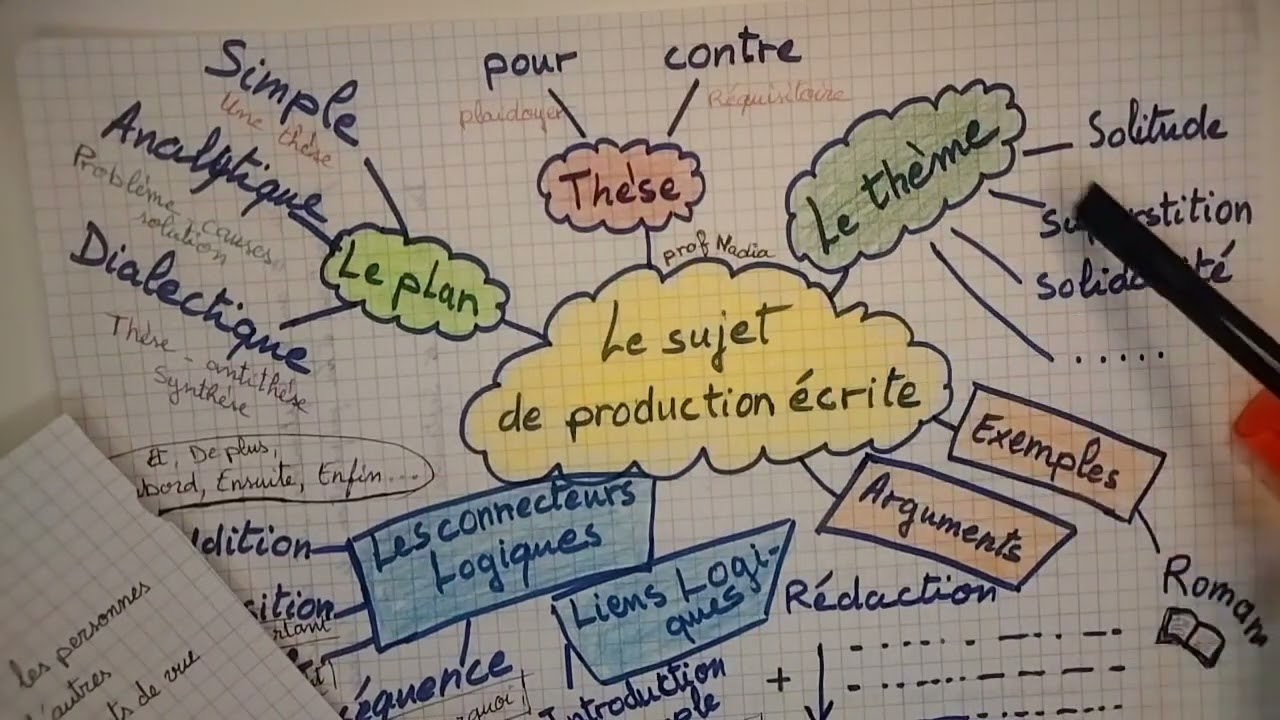 Simple
Une thèse
Analytique
Problème - causes
solution
Dialectique
Thèse - antithèse
Synthèse
Le plan
pour
plaidoyer
contre
Réquisitoire
Thèse
prof Nadia
Le thème
Solitude
Superstition
Solidarité
. . . . . .
Le sujet
de production écrite
Exemples
Roman
Arguments
Et, De plus,
bord, Ensuite, Enfin...
ddition
sition
rtant
équence
rquoi,
Les connecteurs
Logiques
Liens Logi-
ques
Introduction
+
Rédaction
les personnes
autres
ts de vue